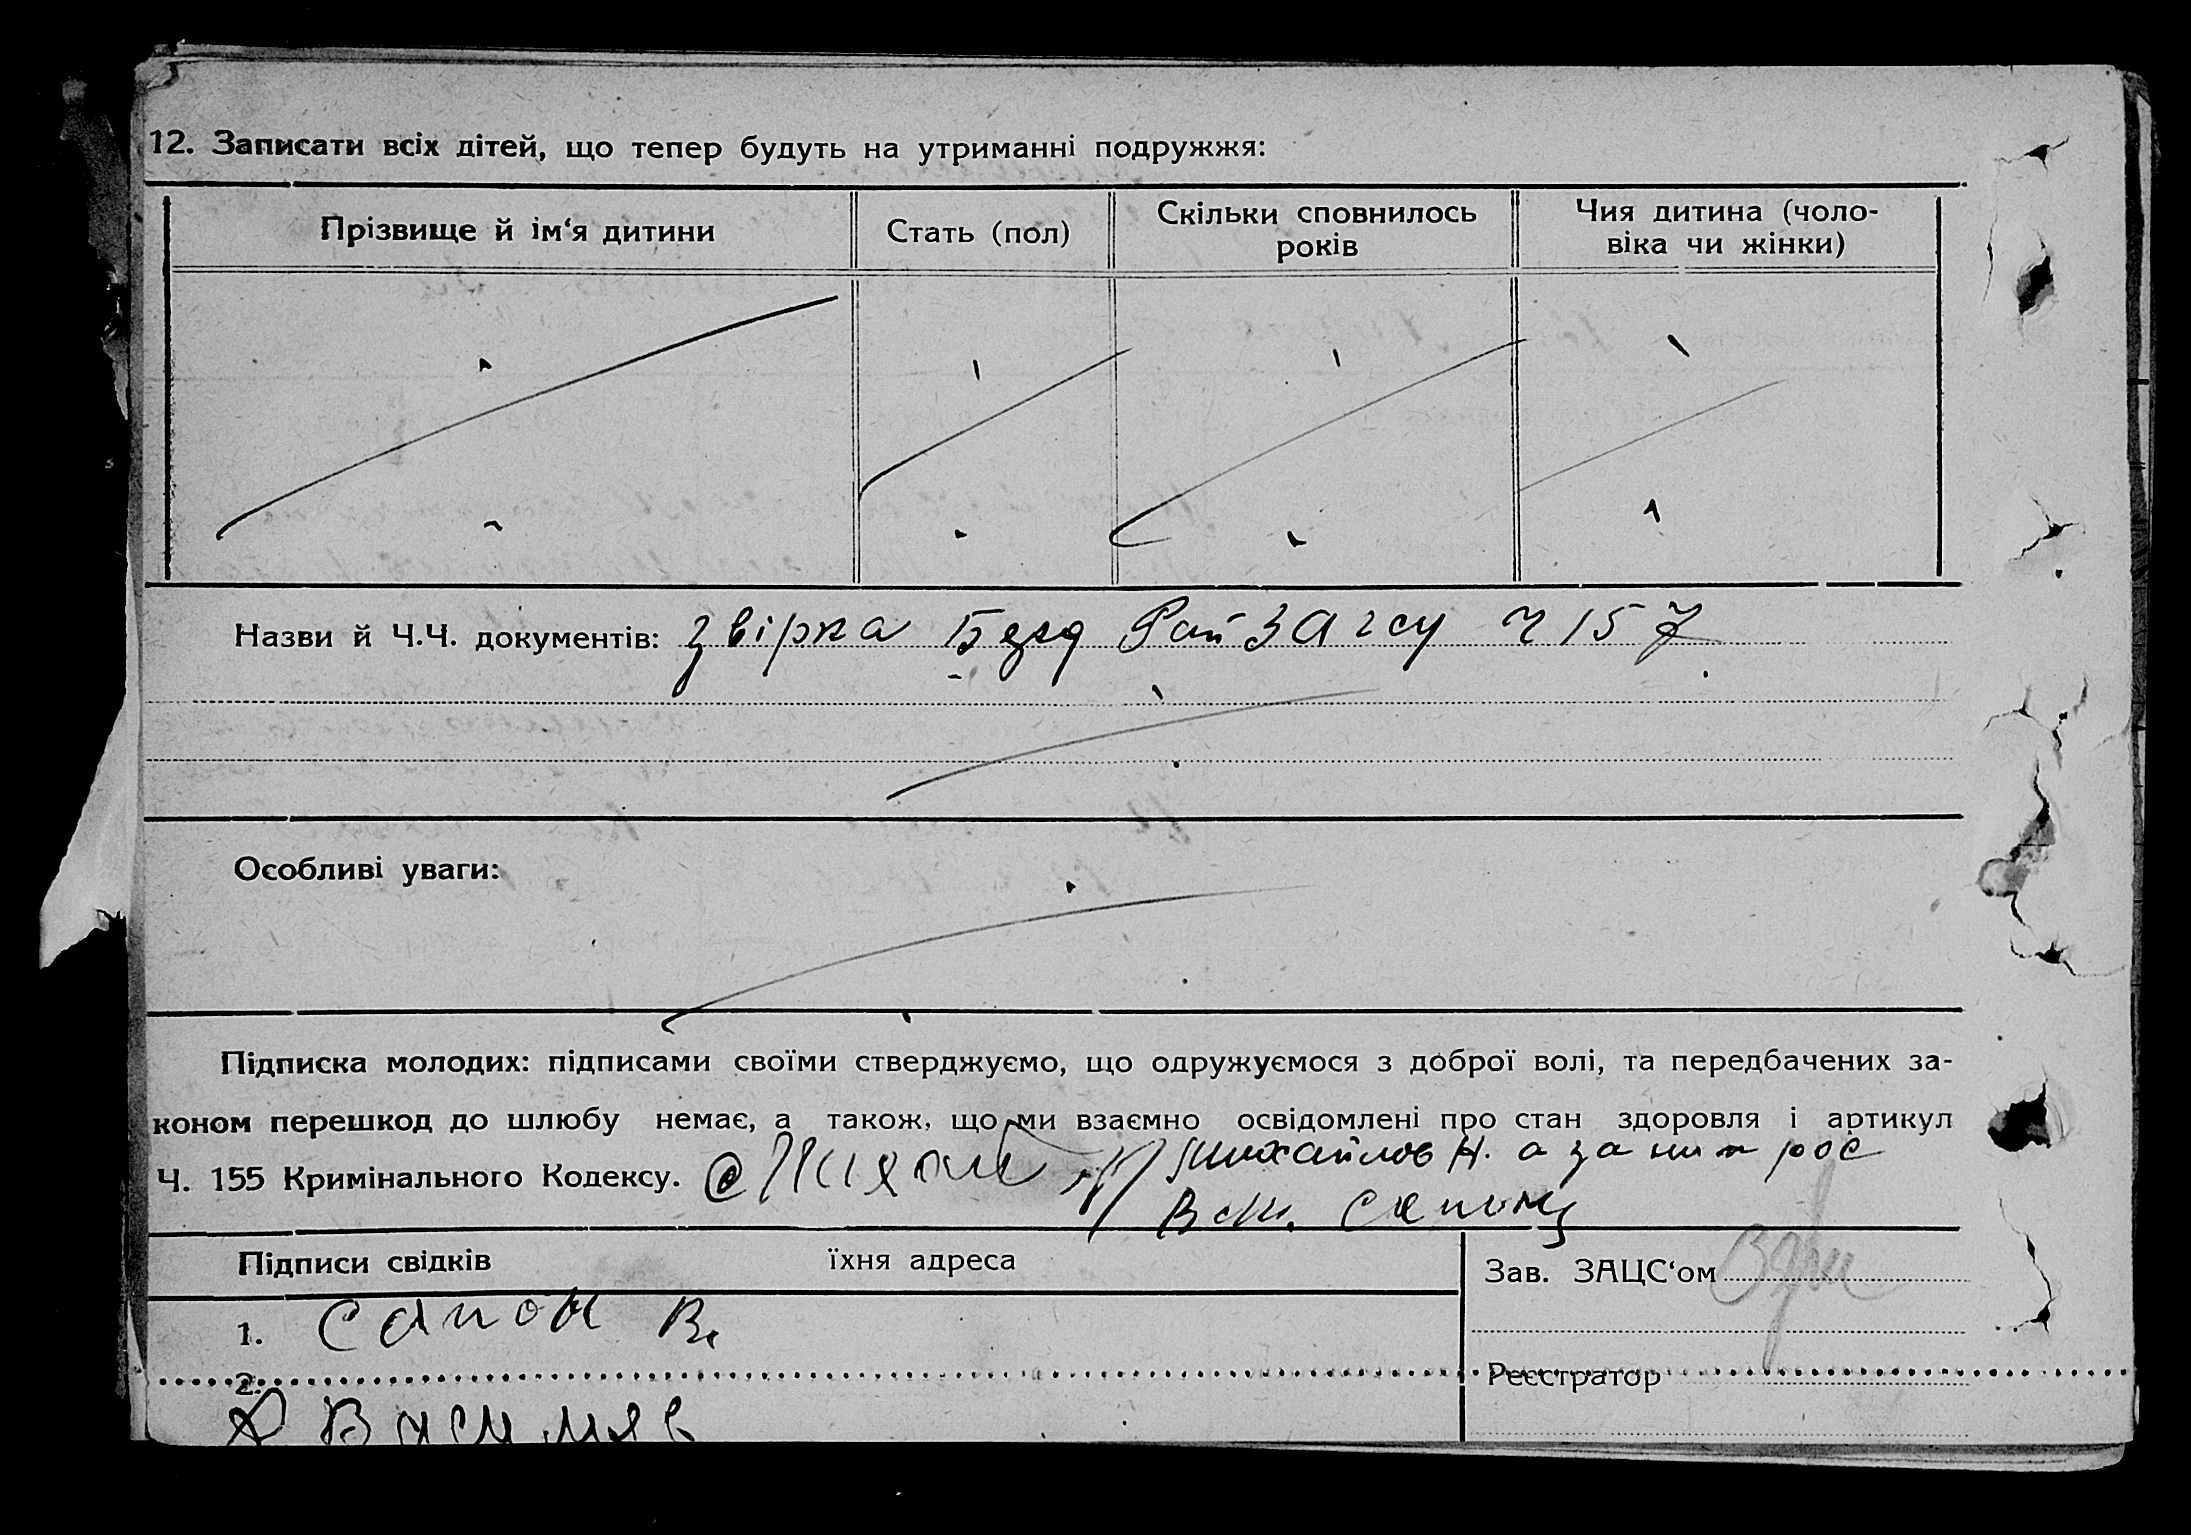 12. Записати всіх дітей, що тепер будуть на утриманні подружжя:
Прізвище й ім‘я дитини
Стать (пол)
Скільки сповнилось
років
Чия дитина (чоло-
віка чи жінки)
Назви й Ч.Ч. документів: звірка Рай ЗАгсу ч 157
Особливі уваги:
Підписка молодих: підписами своїми стверджуємо, що одружуємося з доброї волі, та передбачених за-
коном перешкод до шлюбу немає, а також, що ми взаємно освідомлені про стан здоровля і артикул
Ч. 155 Кримінального Кодексу. Михайлов Н. а за
Підписи свідків
їхня адреса
Зав. ЗАЦС‘ом
1. Сапон В.
2.
Реєстратор